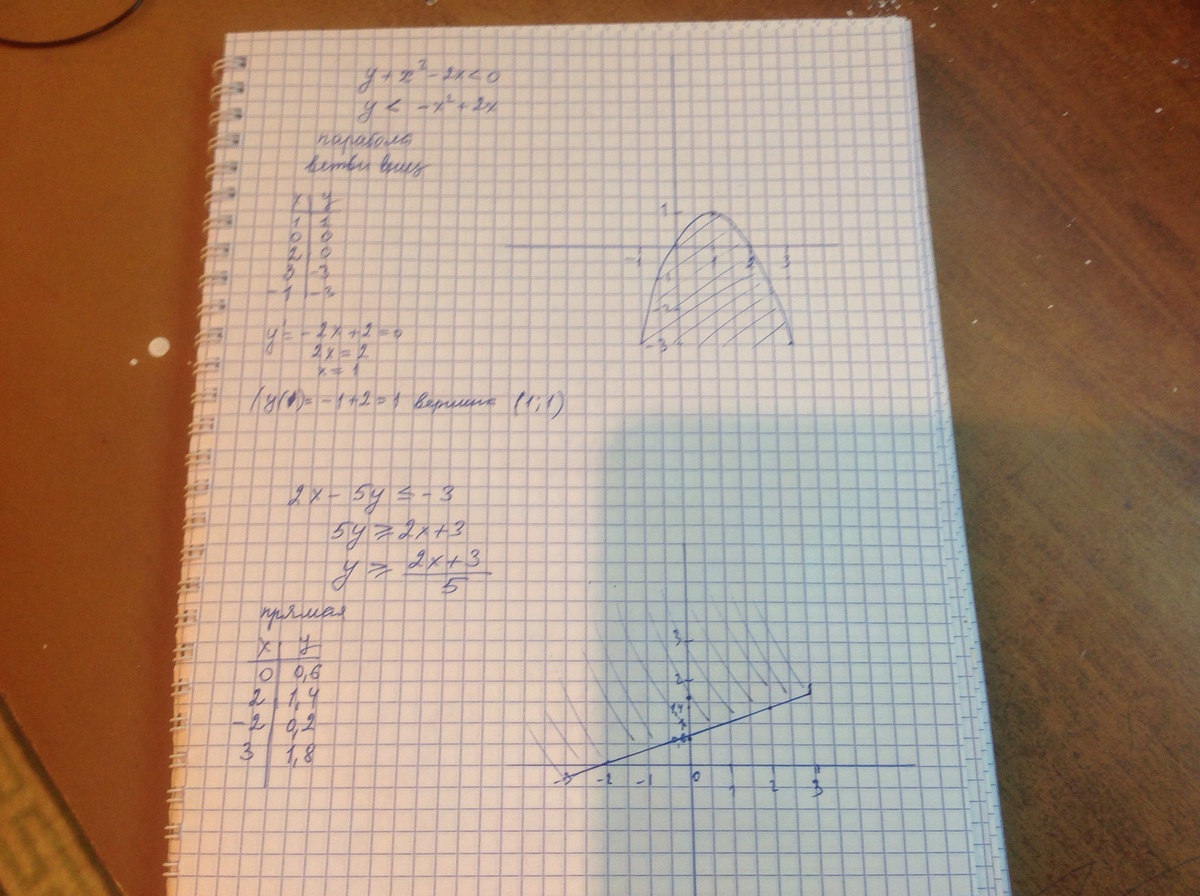 y + x² - 2x < 0
y < -x² + 2x
парабола
ветви вниз
x | y
1 | 1
0 | 0
2 | 0
3 | -3
-1 | -3
y' = -2x + 2 = 0
2x = 2
x = 1
(y(1) = -1 + 2 = 1 вершина (1;1)
1
-1 1 2 3
-1
-2
-3
2x - 5y ≤ -3
5y ≥ 2x + 3
y ≥ (2x + 3)/5
прямая
x | y
0 | 0,6
2 | 1,4
-2 | 0,2
3 | 1,8
3
2
1,4
0,6
-3 -2 -1 0 1 2 3